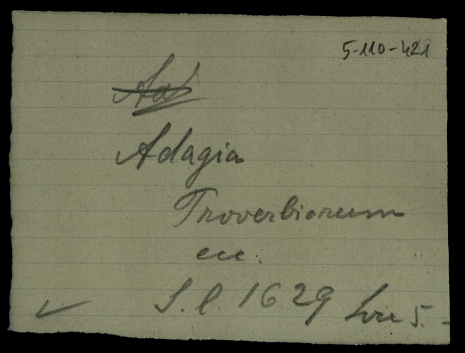 5-110-421
Ad
Adagia
Proverbiorum
S. l. 1629 5.-